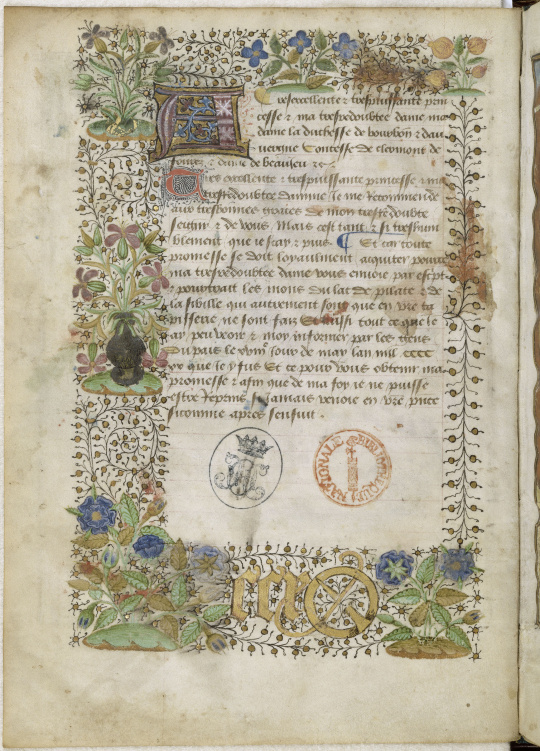 A tresexcellente & trespuissante prin
cesse & ma tresredoubtee dame ma
dame la duchesse de bourbon & dau
uergne Contesse de clermont de
fourez & dame de beaujeu &c
Tres excellente & trespuissante princesse & ma
tresredoubtee dame Je me Recommende
aux tresbonnes graces de mon tresredoubte
seigneur & de vous Mais cest tant & si treshum
blement que ie scay & puis Et car toute
promesse se doit loyaulment acquiter pource
ma tresredoubtee dame vous enuoie par escpt
& pourtrait les mons du lac de pilate & de
la sibille qui autrement sont que en vre ta
pisserie ne sont faiz Et aussi tout ce que Ie
ay peu veoir & moy informer par les gens
du pais le jour de may lan mil cccc
xx que Ie y fus Et ce pour vous obtenir ma
promesse & afin que de ma foy ie ne puisse
estre Reprins se Jamais venoie en vre pnce
sicomme apres sensuit
BIBLIOTHEQUE NATIONALE